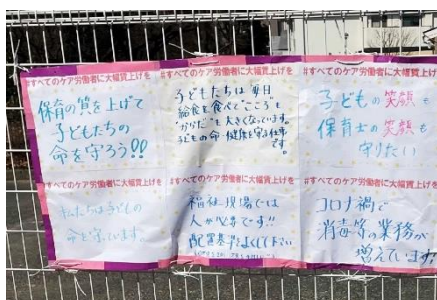 #すべてのケア労働者に大幅賃上げを
保育の質を上げて
子どもたちの
命を守ろう!!
#すべてのケア労働者に大幅賃上げを
子どもたちは毎日
給食を食べて"こころ"も
"からだ"も大きくなっています。
子どもの命・健康を守る仕事
です。
#すべてのケア労働者に大幅賃上げを
子どもの笑顔も
保育士の笑顔も
守りたい
#すべてのケア労働者に大幅賃上げを
私たちは子どもの
命を守っています。
#すべてのケア労働者に大幅賃上げを
福祉現場では
人が必要です!!
配置基準をよくして下さい
#すべてのケア労働者に大幅賃上げを
コロナ禍で
消毒等の業務が
増えています!